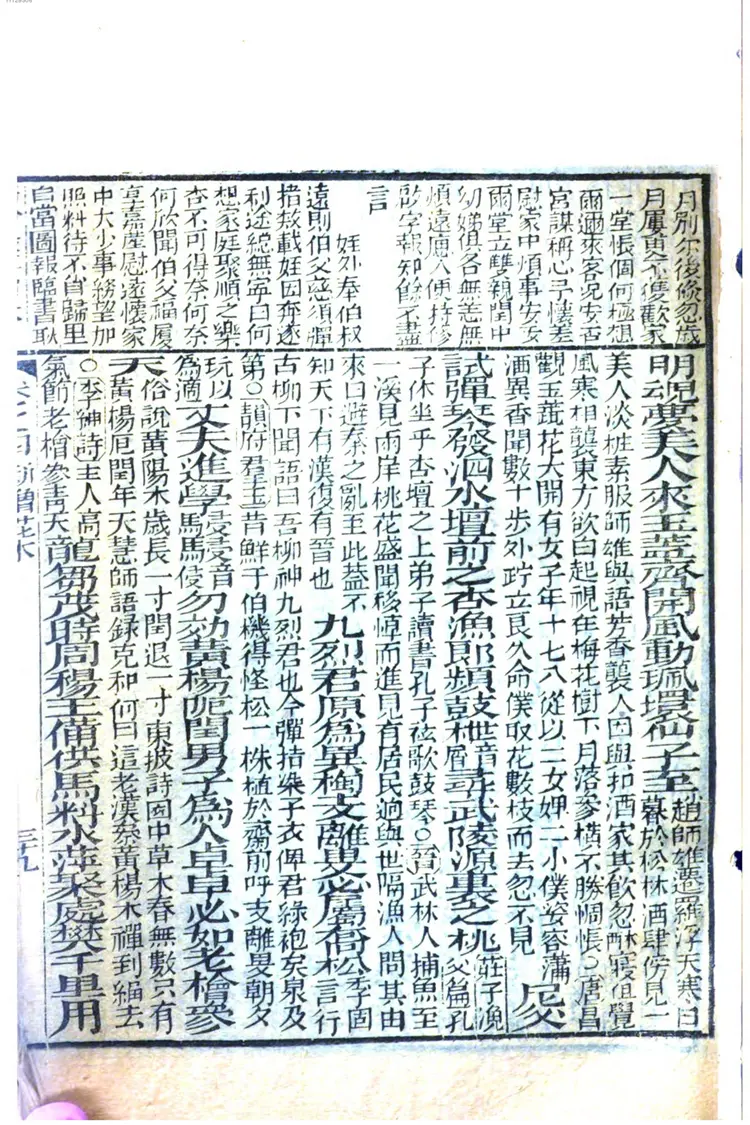 月別尔後倐忽歲
月屢更今隻歡家
一堂悵個何極想
爾邇來客况安否
宮謀稱心予懷差
慰家中煩事安安
爾堂立雙親閨中
幼娣俱各無恙無
煩遠慮人便特修
啟字報知餘不盡
言
姪外奉伯叔
遠則伯父慈須彈
指救載姪因奔逐
利途總無寜日何
想家庭聚順之樂
杳不可得奈何奈
何欣聞伯父福履
享嘉產慰遠懷家
中大小事務望加
照料待不自歸里
自當圖報臨書耿
明魂夢美人來玉蕋齊開風動珮環仙子至趙師雄遷羅浮天寒日
暮於松林酒肆傍見一
美人淡粧素服師雄與語芳香襲人因與扣酒家共飲忽酣寢但覺
風寒相襲東方欲白起視在梅花樹下月落參橫不勝惆悵○唐昌
觀玉蕋花大開有女子年十七八從以二女婢二小僕姿容瀟
洒異香聞數十步外跱立良久命僕取花數枝而去忽不見 尼父
試彈琴發泗水壇前之杏漁郎頻鼓枻音尋武陵源裏之桃莊子漁
父篇孔
子休坐乎杏壇之上弟子讀書孔子弦歌鼓琴○晉武林人捕魚至
一溪見兩岸桃花盛開移悼而進見有居民逈與世隔漁人問其由
來曰避秦之亂至此葢不
知天下有漢復有晉也 九烈君原為異種支離叟必屬喬松李固
言行
古柳下聞語曰吾柳神九烈君也今彈指染子衣俾君綠袍矣泉及
第○韻府君王昔鮮于伯機得怪松一株植於齋前呼支離叟朝夕
玩以
為適 丈夫進學駸駸音侵勿効黃楊厄閏男子為人卓卓必如老檜參
天俗說黃陽木歲長一寸閏退一寸東坡詩園中草木春無數只有
黃楊厄閏年天慧師語錄克和何曰這老漢叅黃楊木禪到縮去
○季紳詩主人高
氣節老檜參青天 龍芻茂時周穆王備供馬料水萍聚處樊千里用
卷之四 新增花木
三十九